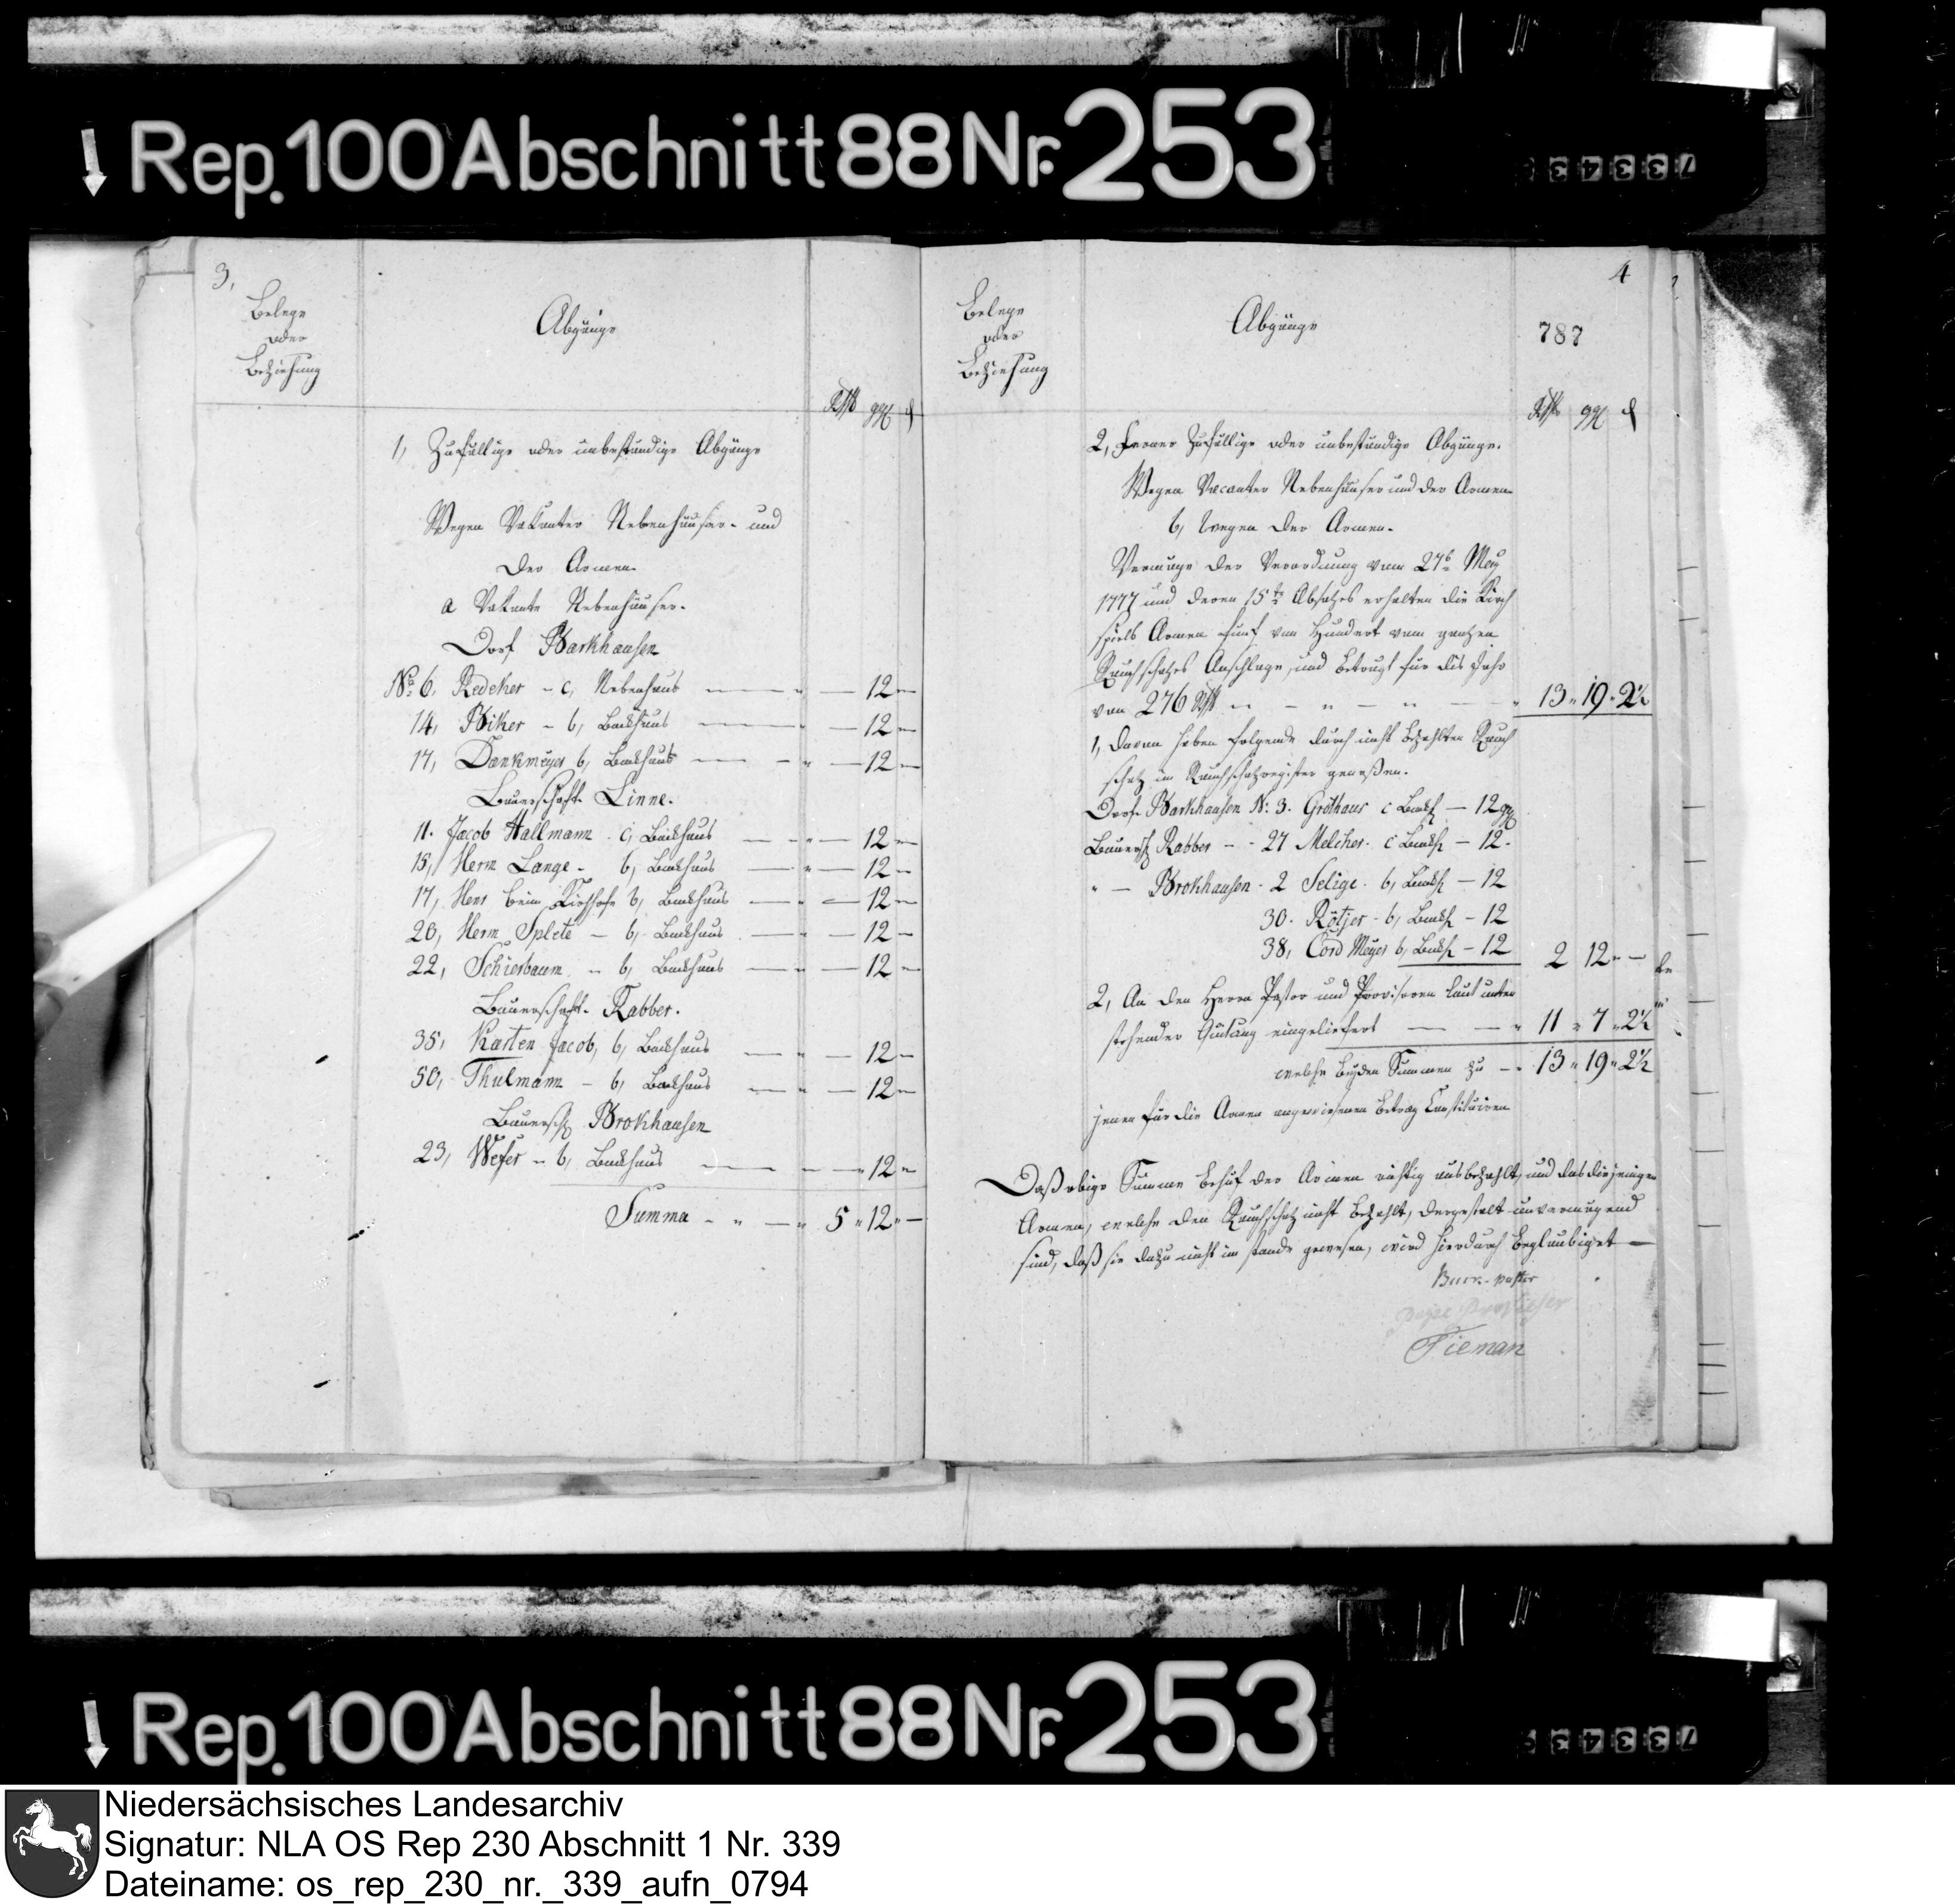 Rep. 100 Abschnitt 88 Nr. 253
3,
Belege
oder
Beziehung
Abgänge
Rthl ggl d
1, Zufällige oder unbeständige Abgänge
Wegen Vakanter Nebenhäuser- und
der Armen
a Vakante Nebenhäuser.
Dorf Barkhausen
No 6, Redeker - c, Nebenhaus - 12 -
14, Biker - b, Backhaus - 12 -
17, Dankmeyer b, Backhaus - 12 -
Bauerschaft Linne.
11. Jacob Hallmann c, Backhaus - 12 -
15, Herm Lange - b, Backhaus - 12 -
17, Henr beim Kirchhofe b, Backhaus - 12 -
20, Herm Splete - b, Backhaus - 12 -
22, Schierbaum - b, Backhaus - 12 -
Bauerschaft Rabber.
35, Karten Jacob, b, Backhaus - 12 -
50, Thulmann - b, Backhaus - 12 -
Bauersch Brokhausen
23, Wefer - b, Backhaus - 12 -
Summa - 5 " 12 " -
4
Belege
oder
Beziehung
Abgänge
787
Rthl ggl d
2, Ferner Zufällige oder unbeständige Abgänge.
Wegen Vacanter Nebenhäuser und der Armen
b, wegen der Armen.
Vermöge der Verordnung vom 27t Mey
1777 und deren 15ten Absatzes erhalten die Kirch
spiels Armen fünf vom Hundert vom gantzen
Rauchschatzes Anschlage, und beträgt für dis Jahr
von 276 Rthl - 13 " 19 " 2½
1, Davon haben folgende durch nicht bezahlten Rauch
schatz im Rauchschatzregister genoßen.
Dorf Barkhausen N: 3. Grothaus c Backh - 12 ggl
Bauersch Rabber - - 27 Melcher. c Backh - 12.
" - Brokhausen - 2 Selige. b, Backh - 12
30. Rötjer - b, Backh - 12
38, Cord Meyer b, Backh - 12 2 12 " -
2, An den Herrn Pastor und Provisoren laut unten
stehender Quitung eingeliefert - 11 " 7 " 2½
welche beyden Summen zu - 13 " 19 " 2½
jenen für die Armen angewiesenen Betrag Constituiren
Daß obige Summe behuf der Armen richtig ausbezahlt, und das diejenigen
Armen, welche den Rauchschatz nicht bezahlt, dergestalt unvermögend
sind, daß sie dazu nicht im stande gewesen, wird hierdurch beglaubiget -
pastor
Tieman
Rep. 100 Abschnitt 88 Nr. 253
Niedersächsisches Landesarchiv
Signatur: NLA OS Rep 230 Abschnitt 1 Nr. 339
Dateiname: os_rep_230_nr._339_aufn_0794